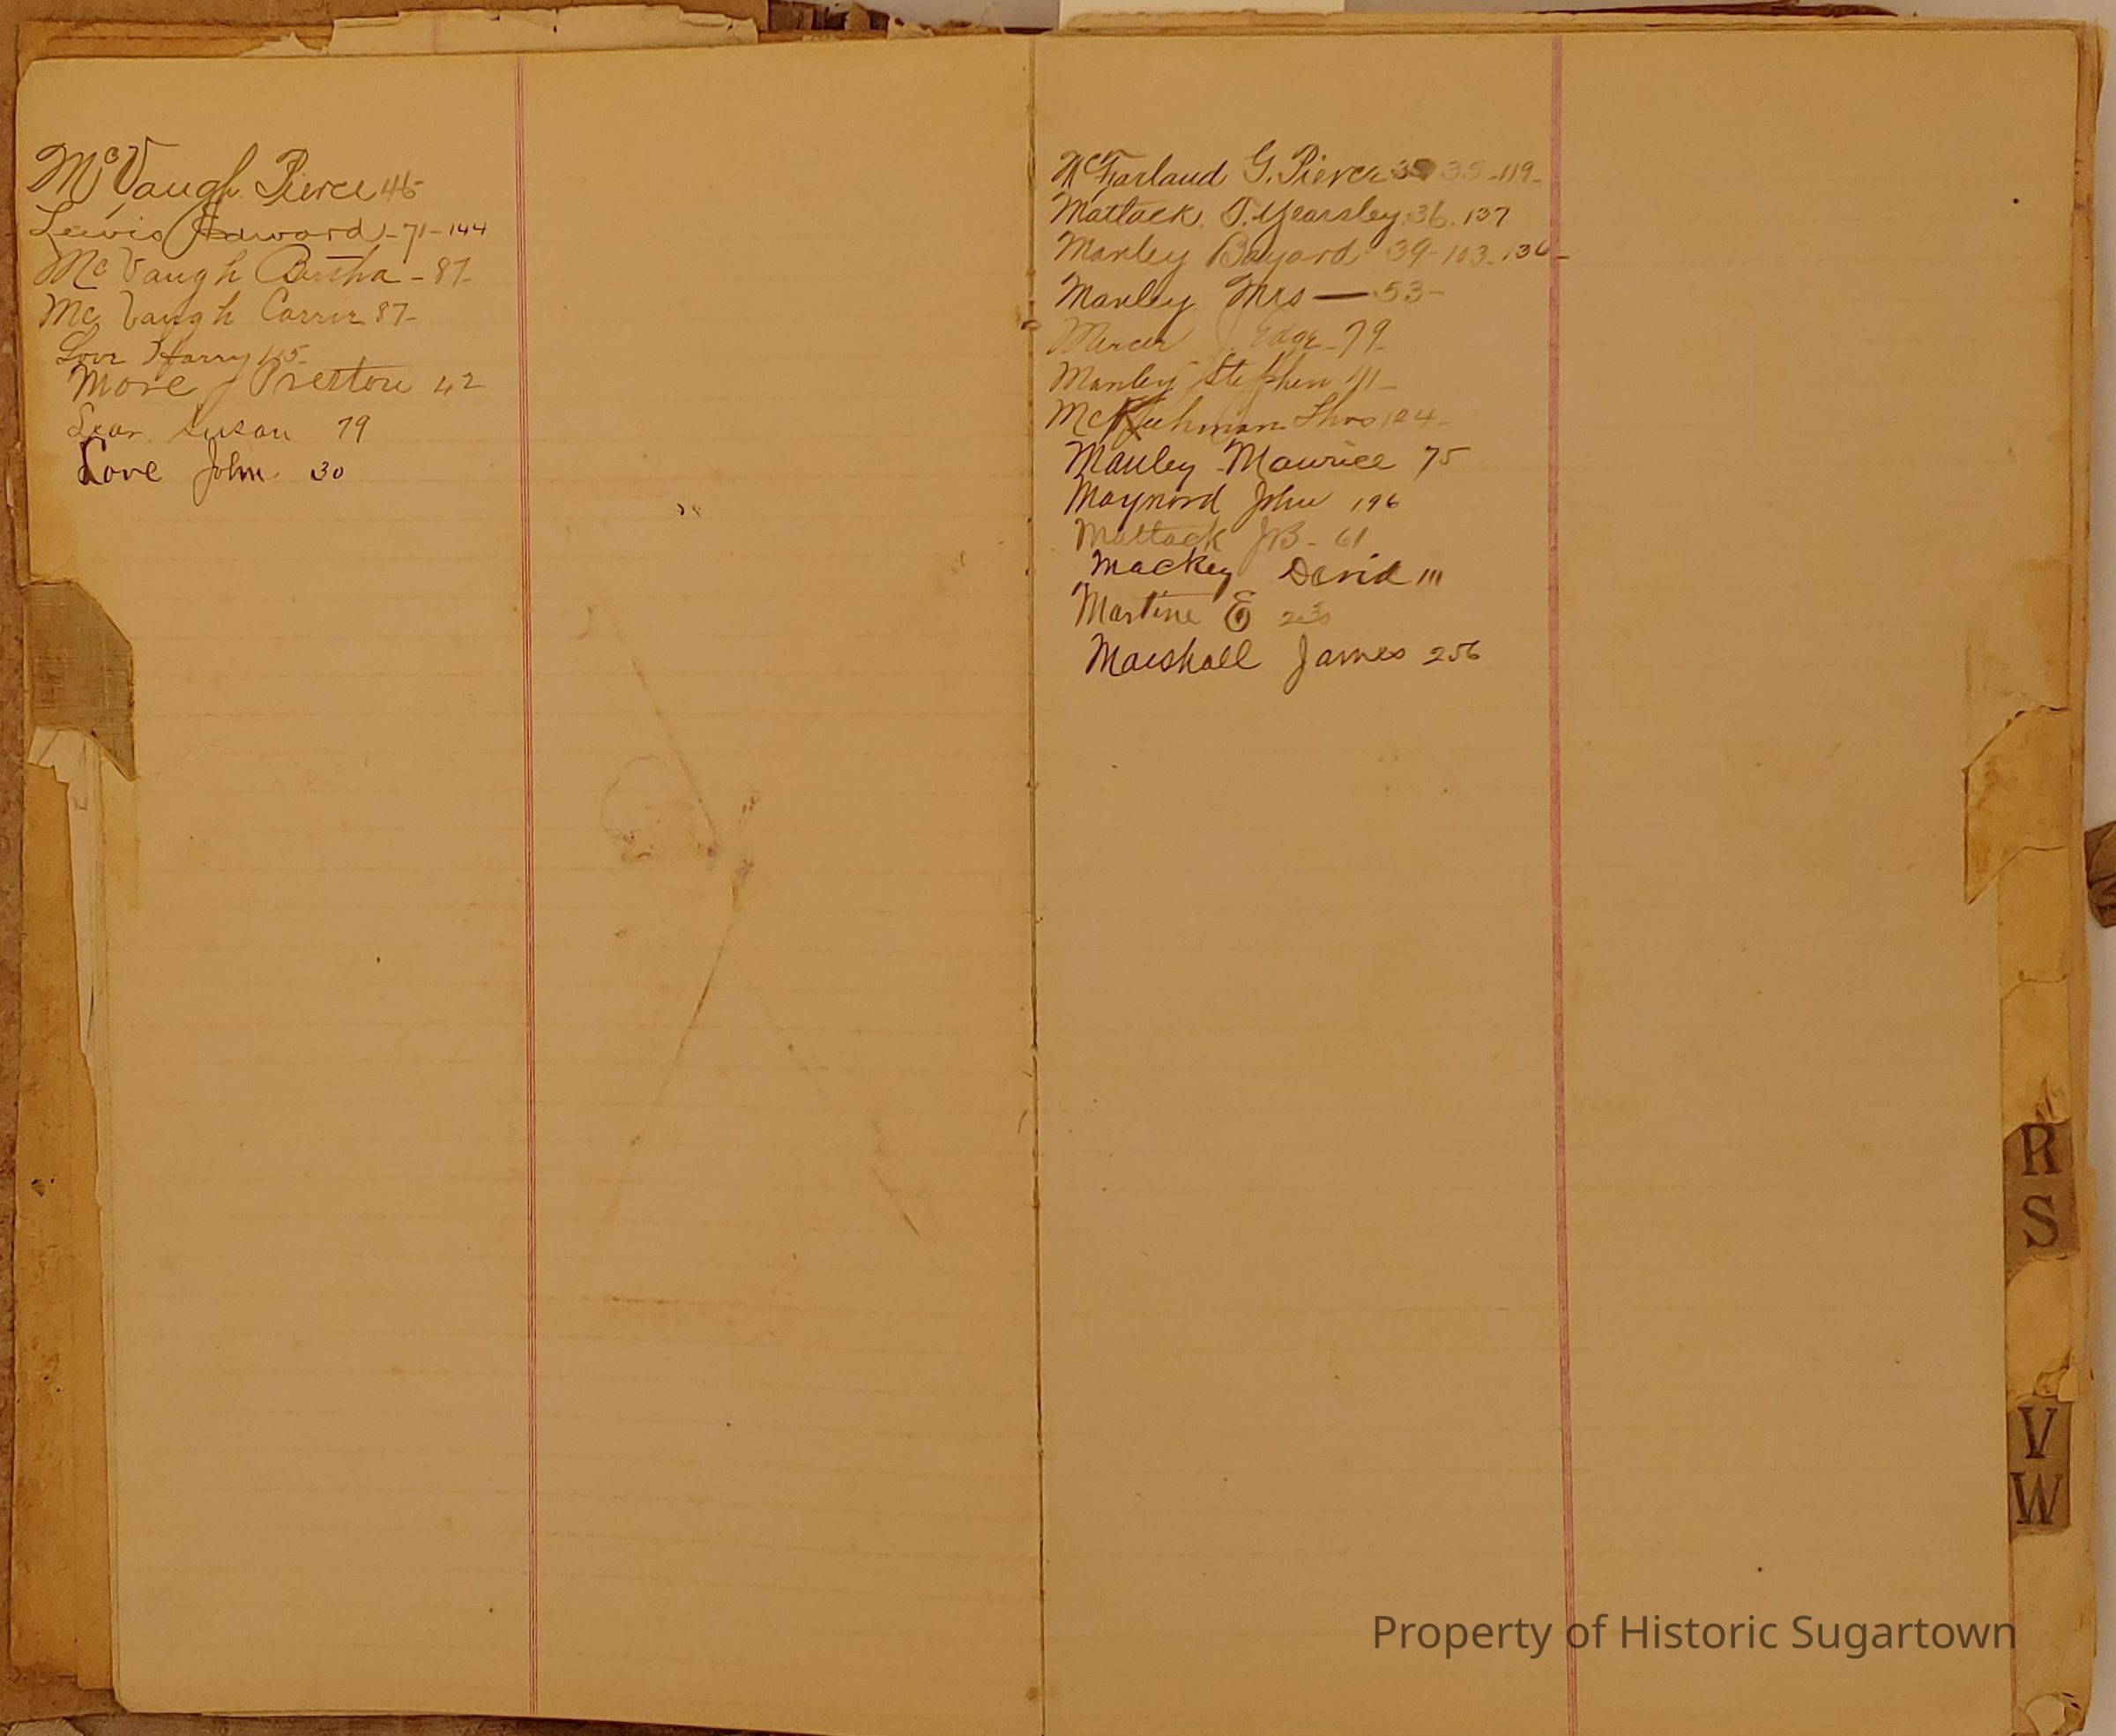 McVaugh Pierce 46-
Lewis Edward-71-144
Mc Vaugh Bertha - 87-
Mc Vaugh Carrie 87-
Love Harry 115-
More J Preston 42
Lear Susan 79
Love John 30
McFarland G. Pierce 35-119-
Matlack T. Yearsley 36. 137
Manley Bayard 39-103-136-
Manley Mrs — 53-
Mercer J. Edge-79-
Manley Stephen 111-
Thos 124-
Manley Maurice 75
Maynord John 196
Matlack JB - 61
Mackey David 111
Martine E
Marshall James 256
R
S
V
W
Property of Historic Sugartown